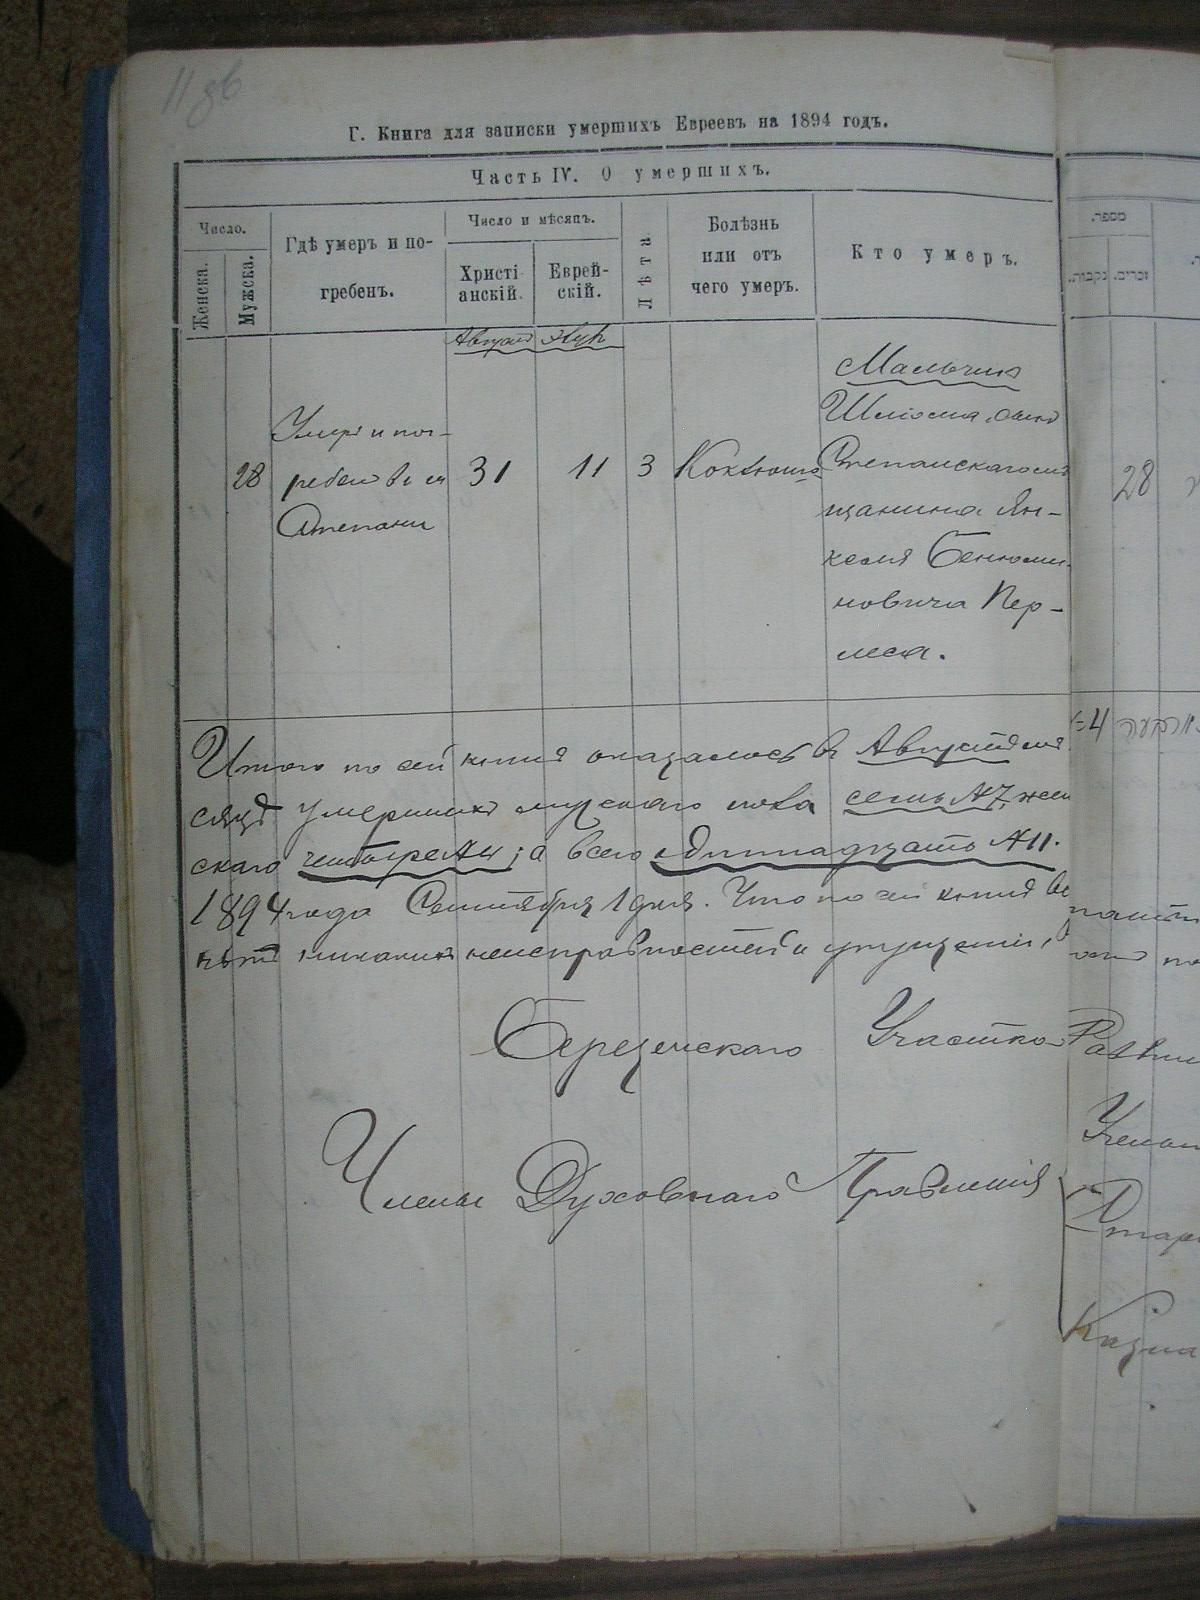 11 об
Г. Книга для записки умершихъ Евреевъ на 1894 годъ.
Часть IV. О умершихъ.
Число.
Женска.
Мужска.
Гдѣ умеръ и по-
гребенъ.
Число и мѣсяцъ.
Христі-
анскій.
Еврей-
скій.
Лѣта
Болѣзнь
или отъ
чего умеръ.
Кто умеръ.
מספר.
נקבות.
זכרים.
Августъ
Элулъ
28
Умеръ и пог-
ребенъ въ м
Степани
31
11
3
Коклюшъ
Мальчикъ
Шліома, сынъ
Степанскаго мѣ
щанина Ян-
келя Бенюми-
новича Пер-
леса.
28
Итого по сей книгѣ оказалось въ Августѣ мѣ
сяцѣ умершихъ мужскаго пола семь №7, жен
скаго четыре №4; а всего одиннадцать №11.
1894 года Сентября 1 дня. Что по сей книгѣ
нѣтъ никакихъ неисправностей и упущеній,
Березенскаго Участка
Члены Духовнаго Правленія